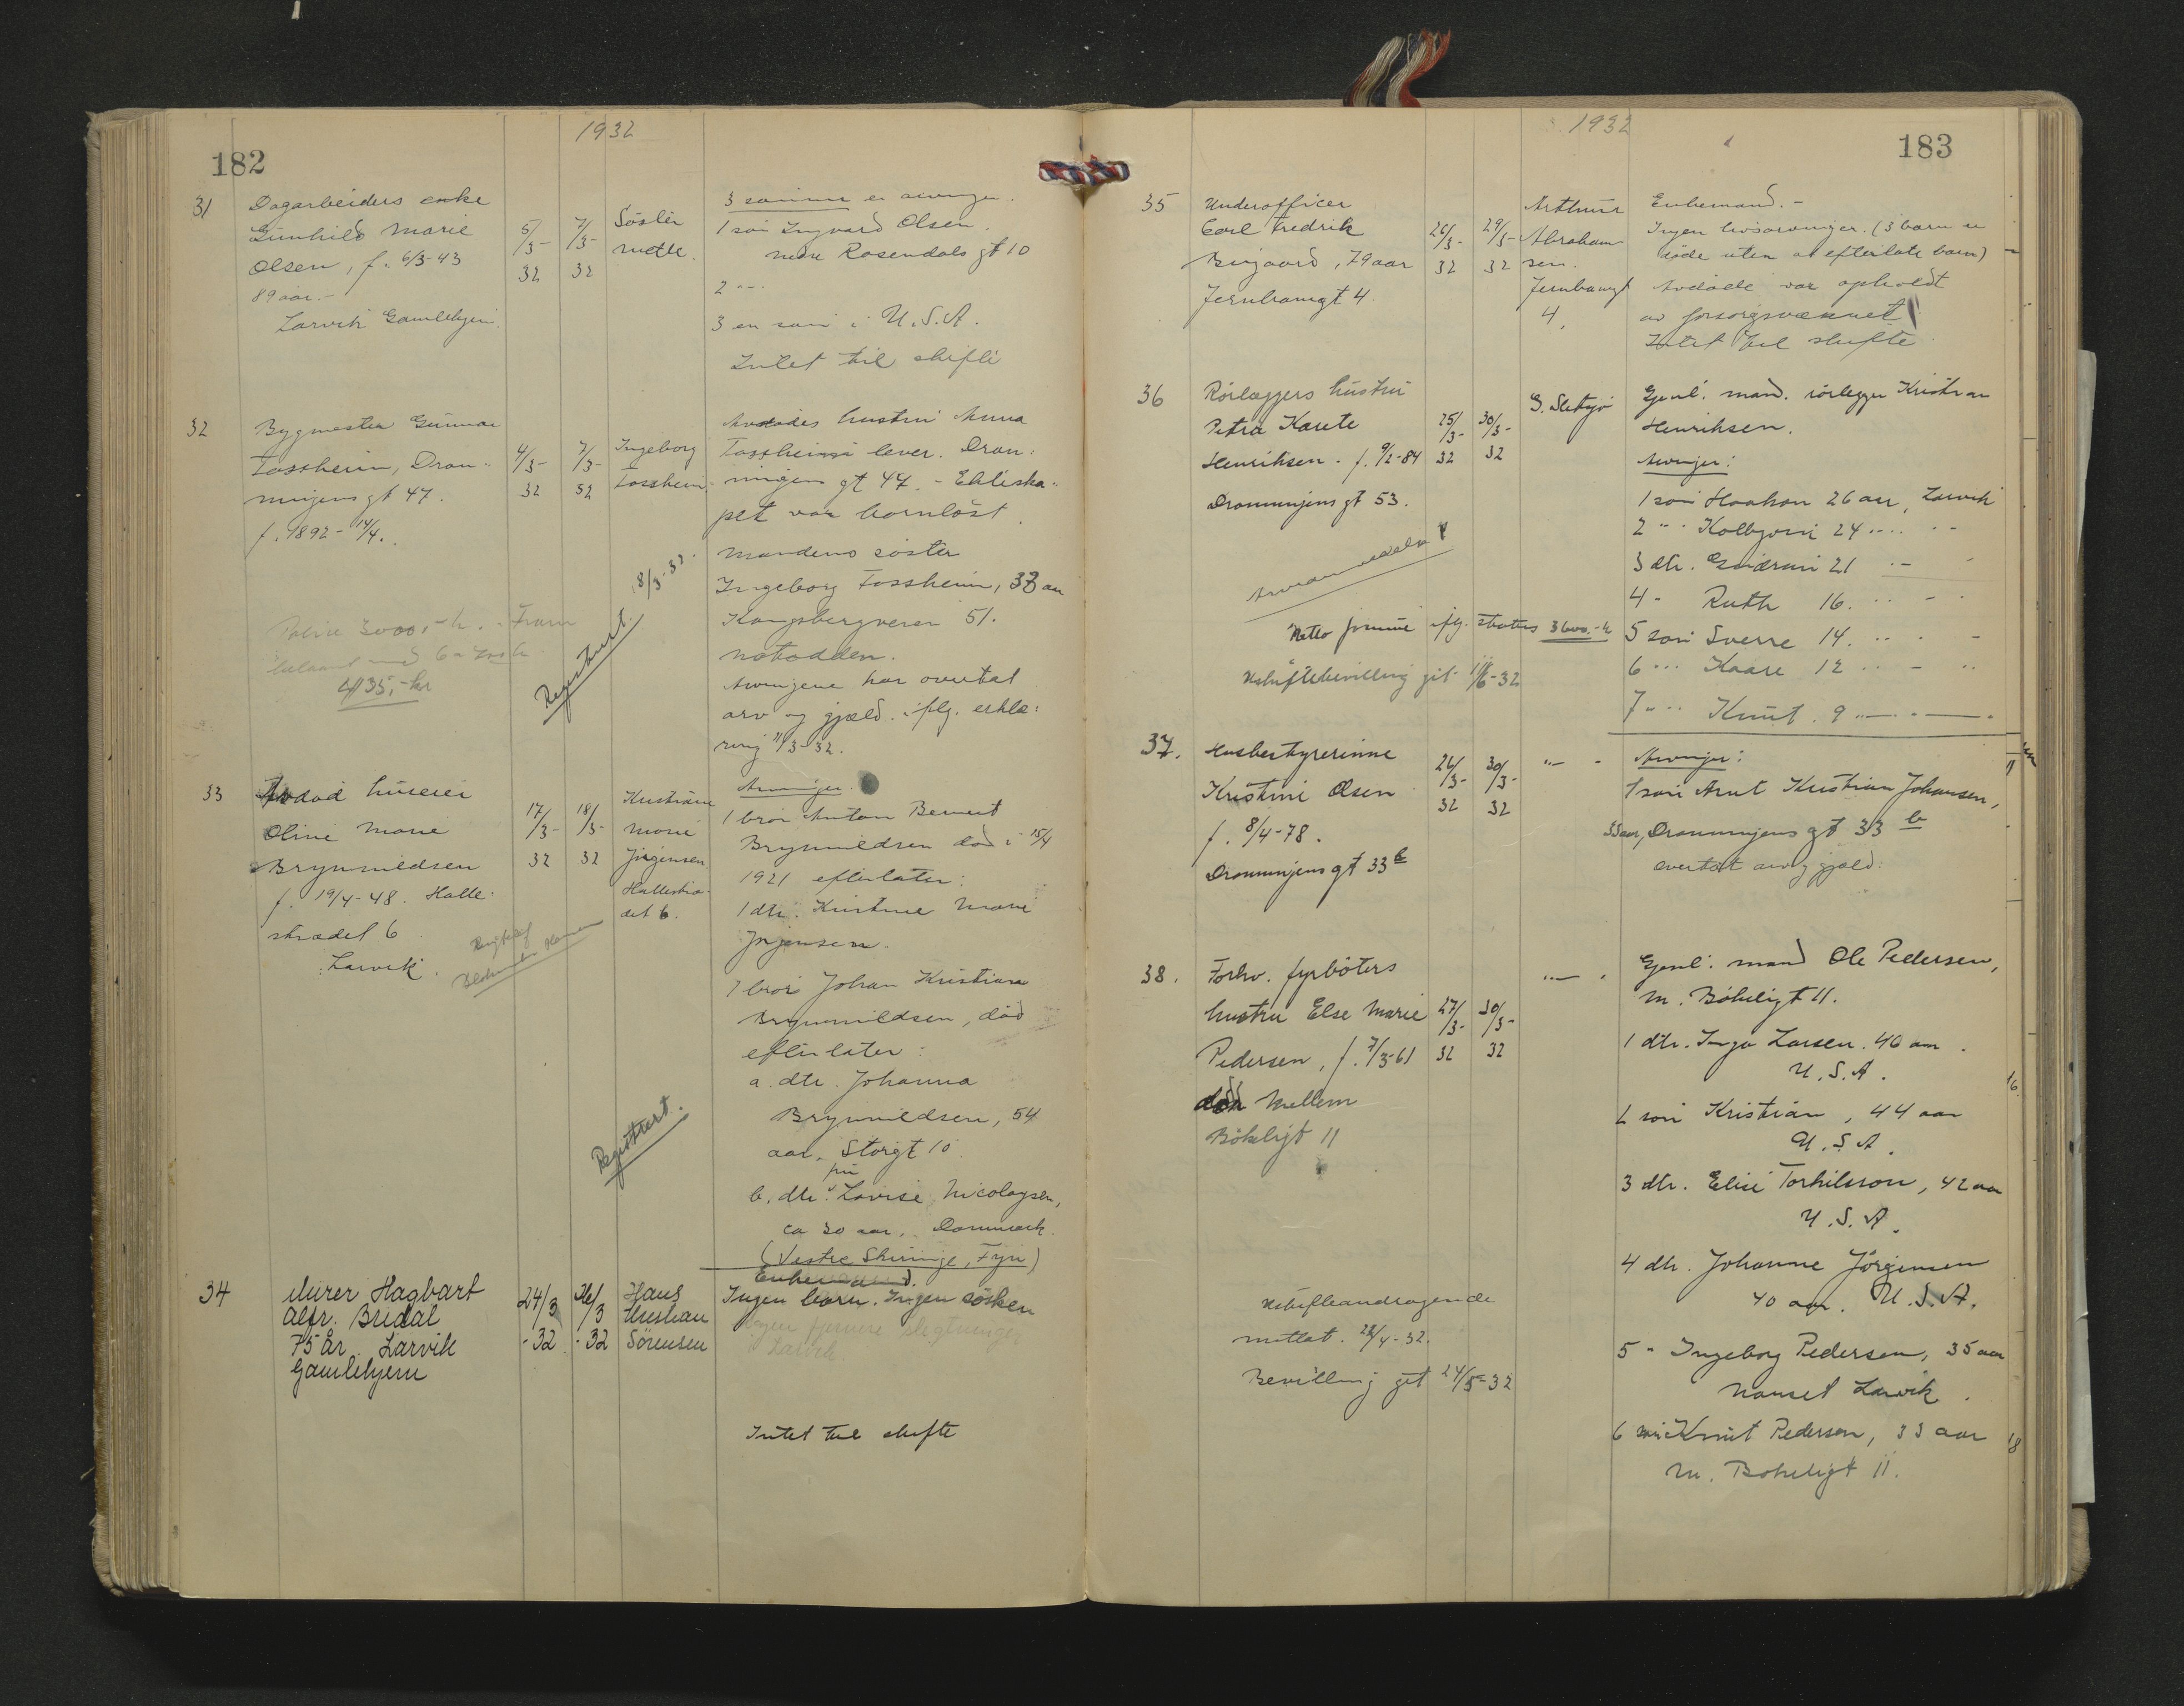 1932
182
31
Dagarbeiders enke
Gunhild Marie
Olsen, f. 6/3-43
89 aar.-
Larvik Gamlehjem.
5/3-
32
7/3-
32
Søster
Mette.
3 sønner er arvinger.
1 søn Ingvard Olsen.
nedre Rosendals gt 10
2 -"-
3 en søn i U.S.A.
Intet til skifte
32
Bygmester Gunnar
Fossheim, Dron-
ningens gt 47.
f. 1892-14/4.
4/3-
32
7/3-
32
Ingeborg
Fossheim
Avdødes hustru Anna
Fossheim lever. Dron-
ningens gt 47. - Ekteska-
pet var barnløst.
Mandens søster
Ingeborg Fossheim, 38 aar
Kongsbergveien 51.
Notodden.
Arvingene har overtat
arv og gjæld. ifølg. erklæ-
ring 11/3-32.
Police 3000,- kr. - Fram
belaant med
435,- kr
Registrert. 18/3-32.
33
Avdød huseier
Oline Marie
Brynnildsen
f. 19/4-48. Halle-
strædet 6
Larvik.
17/3-
32
18/3-
32
Kristiane
Marie
Jørgensen
Hallestræ-
det 6.
Registrert.
Arvinger.
1 bror Anton Bernert
Brynnildsen død i 15/4
1921 efterlater:
1 dtr. Kristine Marie
Jørgensen.
1 bror Johan Kristian
Brynnildsen, død
efterlater:
a. dtr. Johanna
Brynnildsen, 54
aar. Storgt 10
b. dtr. fru Lovise Nicolaysen,
ca 50 aar, Danmark.
(Vestre Skerninge, Fyn)
34
Murer Hagbart
Alfr. Bredal
75 år. Larvik
Gamlehjem
24/3
-32
26/3
-32
Hans
Kristian
Sørensen
Enkemand.
Ingen barn. Ingen søsken
Ingen fjernere slegtninger
i Larvik
Intet til skifte
1932
183
35
Underofficer
Carl Fredrik
Bergaard, 79 aar
Jernbanegt 4.
26/3-
32
29/3-
32
Arthur
Abraham-
sen.
Jernbanegt
4.
Enkemand.-
Ingen livsarvinger. (3 barn er
døde uten at efterlate barn)
Avdøde var opholdt
av forsorgsvæsenet
Intet til skifte
36
Rørlæggers hustru
Petra Karete
Henriksen. f. 9/2-84
Dronningens gt 53.
25/3-
32
30/3-
32
S. Sletsjø
Gjenl. mand. rørlegger Kristian
Henriksen.
Arvinger:
1 søn Haakon 26 aar, Larvik
2 -"- Kolbjørn 24 -"-
3 dtr. Gudrun 21 -"-
4 - Ruth 16. -"-
5 søn Sverre 14. -"-
6 -"- Kaare 12 -"-
7 -"- Knut. 9 -"-
Arveanmeldelse
Netto formue iflg. status 3600.- kr
Uskiftebevilling git 11/6-32
37.
Husbestyrerinne
Kristine Olsen
f. 8/4-78.
Dronningens gt 33 b
26/3-
32
30/3-
32
-"-
Arvinger:
1 søn Arnt Kristian Johansen,
33 aar, Dronningens gt 33 b
overtat arv og gjæld.
38.
Forhv. fyrbøters
hustru Else Marie
Pedersen, f. 7/3-61
død Mellem
Bøkeligt 11
27/3-
32
30/3-
32
-"-
Gjenl. mand Ole Pedersen,
m. Bøkeligt 11.
1 dtr. Inga Larsen. 46 aar.
U.S.A.
2 søn Kristian, 44 aar
U.S.A.
3 dtr. Elise Torkilsson, 42 aar
U.S.A.
4 dtr. Johanne Jørgensen
40 aar. U.S.A.
5 " Ingeborg Pedersen, 35 aar
Nanset Larvik.
6 søn Knut Pedersen, 33 aar
m. Bøkeligt 11.
Uskifteandragende
mottat. 22/4-32.
Bevilling git 24/5-32